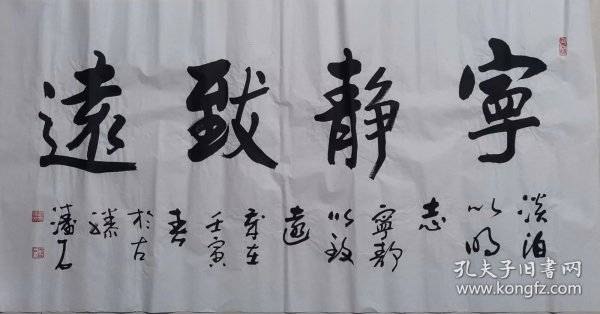 寧靜致遠
淡泊
以明
志
寧靜
以致
遠
歲在
壬寅
春
於古
滕
潘石
孔夫子旧书网
www.kongfz.com